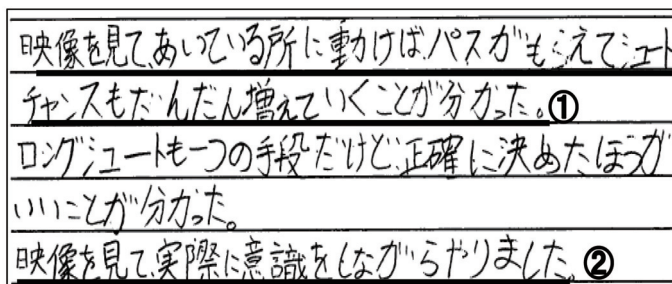 映像を見て、あいている所に動けばパスがもらえてシュート
チャンスもだんだん増えていくことが分かった。①
ロングシュートも一つの手段だけど、正確に決めたほうが
いいことが分かった。
映像を見て、実際に意識をしながらやりました。②